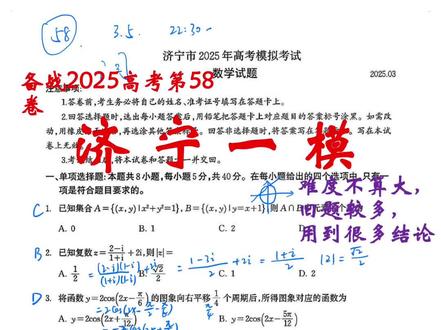 58
3.5.
22:30-
济宁市2025年高考模拟考试
数学试题
2025.03
备战2025高考第58
卷
济宁一模
注意事项:
1.答卷前,考生务必将自己的姓名、准考证号填写在答题卡上。
2.回答选择题时,选出每小题答案后,用铅笔把答题卡上对应题目的答案标号涂黑。如需改
动,用橡皮 再选涂其 回答非选择题时,将答案写在 写在本试
卷上无效
3.考 后,将本试卷和答 一并交回。
一、单项选择题:本题共8小题,每小题5分,共40分。在每小题给出的四个选项中,只有一
项是符合题目要求的。
难度不算大,
旧题较多,
用到很多结论
C 1. 已知集合A={(x,y)|x²+y²=1},B={(x,y)|y=x+1},则A∩B
A. 0 B. 1 C. 2 D.
B 2. 已知复数z=(2-i)/(1+i)+2i,则|z|=
A. 1/2 B. √2/2 C. 1 D. 2
=(2-i)(1-i)/(1+i)(1-i)+2i = (1-3i)/2+2i = (1+i)/2 |z|=√2/2
D 3. 将函数y=2cos(2x-π/6)的图象向右平移1/4个周期后,所得图象对应的函数为
A. y=2cos(2x+π/12) B. y=2cos(2x-5π/12)